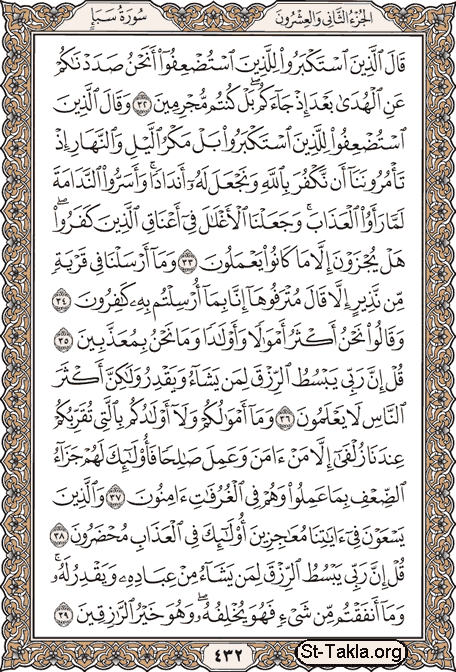 الجزء الثاني والعشرون سورة سبإ
قَالَ ٱلَّذِينَ ٱسْتَكْبَرُوا۟ لِلَّذِينَ ٱسْتُضْعِفُوٓا۟ أَنَحْنُ صَدَدْنَٰكُمْ
عَنِ ٱلْهُدَىٰ بَعْدَ إِذْ جَآءَكُم ۖ بَلْ كُنتُم مُّجْرِمِينَ ٣٢ وَقَالَ ٱلَّذِينَ
ٱسْتُضْعِفُوا۟ لِلَّذِينَ ٱسْتَكْبَرُوا۟ بَلْ مَكْرُ ٱلَّيْلِ وَٱلنَّهَارِ إِذْ
تَأْمُرُونَنَآ أَن نَّكْفُرَ بِٱللَّهِ وَنَجْعَلَ لَهُۥٓ أَندَادًا ۚ وَأَسَرُّوا۟ ٱلنَّدَامَةَ
لَمَّا رَأَوُا۟ ٱلْعَذَابَ ۚ وَجَعَلْنَا ٱلْأَغْلَٰلَ فِىٓ أَعْنَاقِ ٱلَّذِينَ كَفَرُوا۟ ۖ
هَلْ يُجْزَوْنَ إِلَّا مَا كَانُوا۟ يَعْمَلُونَ ٣٣ وَمَآ أَرْسَلْنَا فِى قَرْيَةٍ
مِّن نَّذِيرٍ إِلَّا قَالَ مُتْرَفُوهَآ إِنَّا بِمَآ أُرْسِلْتُم بِهِۦ كَٰفِرُونَ ٣٤
وَقَالُوا۟ نَحْنُ أَكْثَرُ أَمْوَٰلًا وَأَوْلَٰدًا وَمَا نَحْنُ بِمُعَذَّبِينَ ٣٥
قُلْ إِنَّ رَبِّى يَبْسُطُ ٱلرِّزْقَ لِمَن يَشَآءُ وَيَقْدِرُ وَلَٰكِنَّ أَكْثَرَ
ٱلنَّاسِ لَا يَعْلَمُونَ ٣٦ وَمَآ أَمْوَٰلُكُمْ وَلَآ أَوْلَٰدُكُم بِٱلَّتِى تُقَرِّبُكُمْ
عِندَنَا زُلْفَىٰٓ إِلَّا مَنْ ءَامَنَ وَعَمِلَ صَٰلِحًا فَأُو۟لَٰٓئِكَ لَهُمْ جَزَآءُ
ٱلضِّعْفِ بِمَا عَمِلُوا۟ وَهُمْ فِى ٱلْغُرُفَٰتِ ءَامِنُونَ ٣٧ وَٱلَّذِينَ
يَسْعَوْنَ فِىٓ ءَايَٰتِنَا مُعَٰجِزِينَ أُو۟لَٰٓئِكَ فِى ٱلْعَذَابِ مُحْضَرُونَ ٣٨
قُلْ إِنَّ رَبِّى يَبْسُطُ ٱلرِّزْقَ لِمَن يَشَآءُ مِنْ عِبَادِهِۦ وَيَقْدِرُ لَهُۥ ۚ
وَمَآ أَنفَقْتُم مِّن شَىْءٍ فَهُوَ يُخْلِفُهُۥ ۖ وَهُوَ خَيْرُ ٱلرَّٰزِقِينَ ٣٩
٤٣٢
St-Takla.org